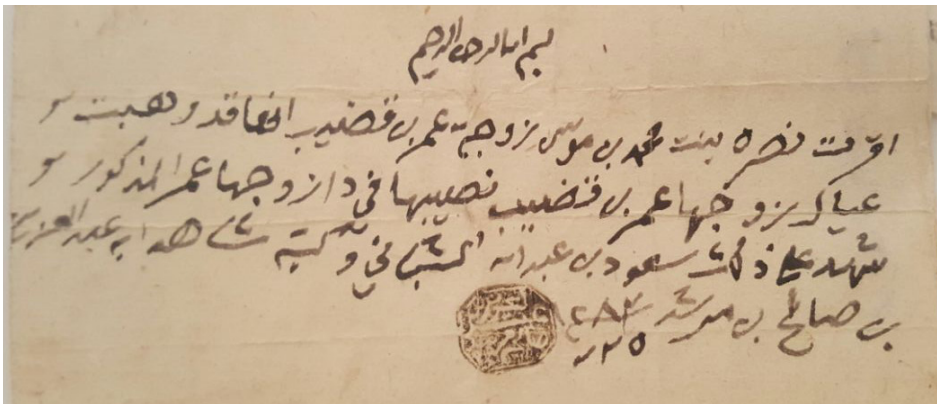 بسم الله الرحمن الرحيم
اقرت نصره بنت محمد بن موسى زوجة عمر بن قضيب انها قد وهبت
عيال زوجها عمر بن قضيب نصيبها في دار زوجها عمر المذكور و
شهد على ذلك سعود بن عبدالله وكتبه شاهدا به عبدالعزيز
بن صالح بن مرشد